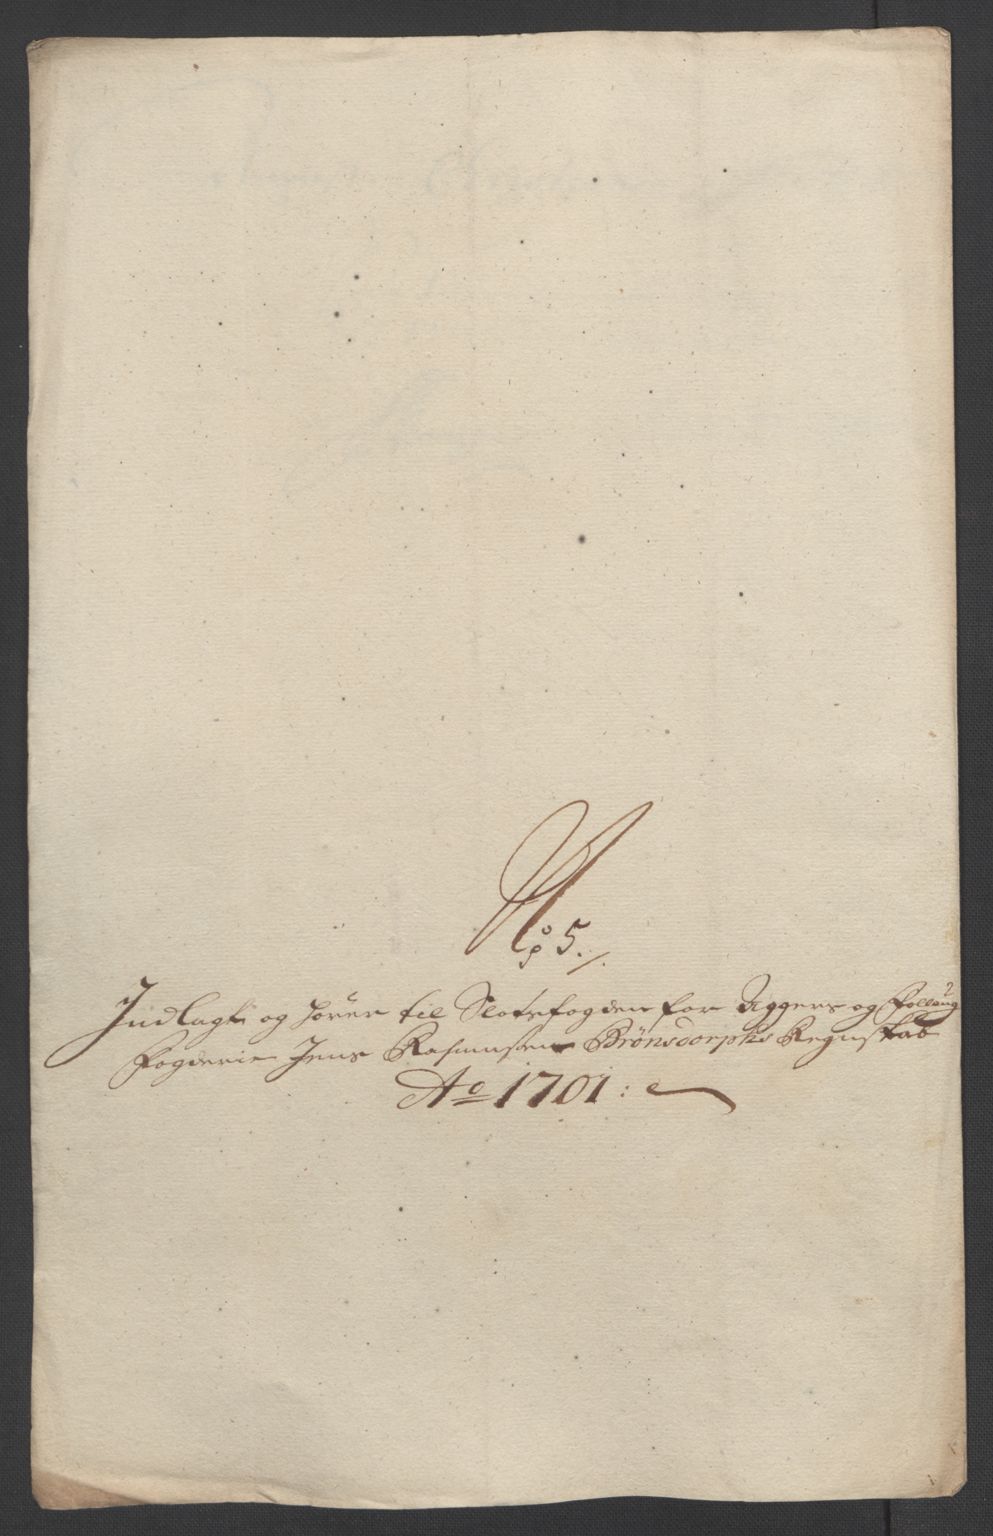 No 5 ./.
Indlagt og hører til Slotsfogden for Aggers og Folloug
Fogderie Jens Rasmusen Brønsdorphs Regnskab
Ao 1701 :